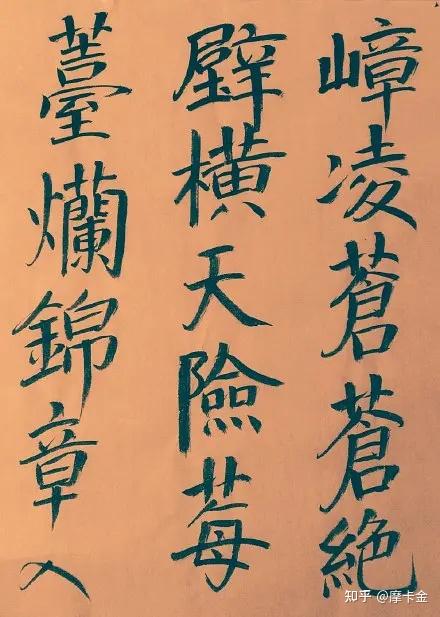 嶂凌蒼蒼絶
壁橫天險莓
薹爛錦章入
知乎 @摩卡金